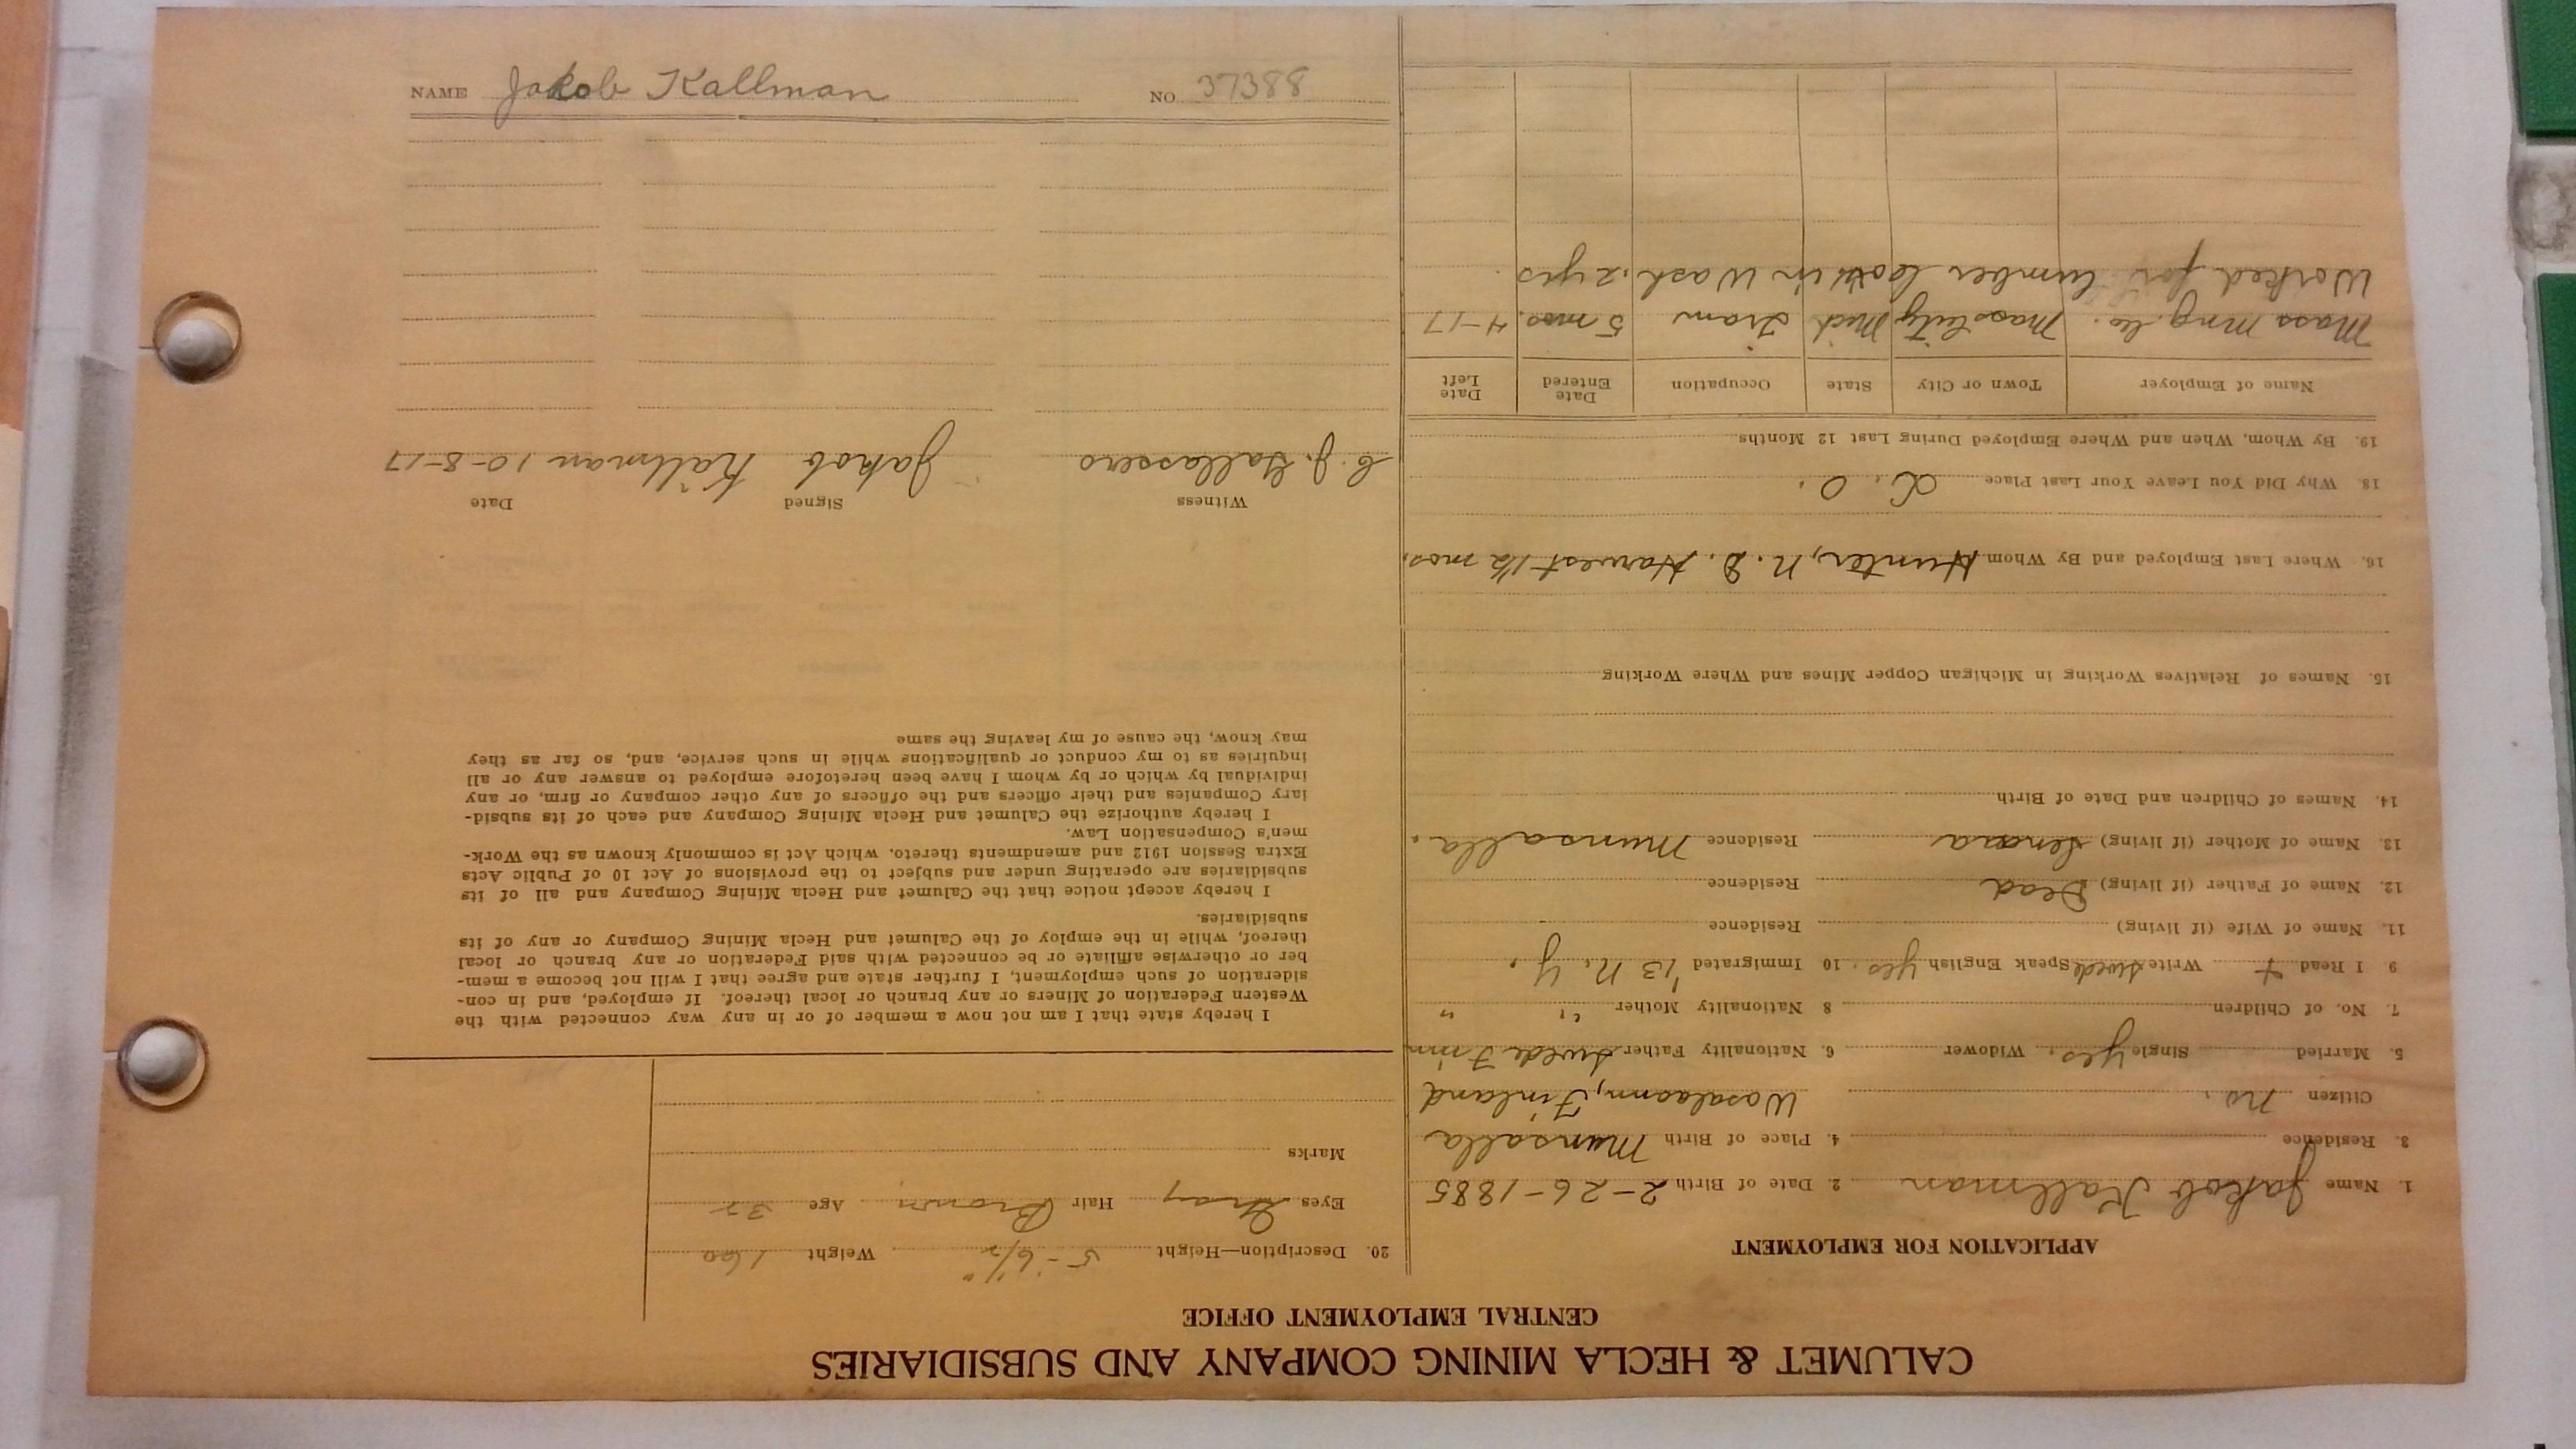 CALUMET & HECLA MINING COMPANY AND SUBSIDIARIES
CENTRAL EMPLOYMENT OFFICE
APPLICATION FOR EMPLOYMENT
1. Name Jakob Kallman 2. Date of Birth 2-26-1885
3. Residence 4. Place of Birth Munsalla
Citizen no. Wasalaann, Finland
5. Married Single yes. Widower 6. Nationality Father Swede Finn
7. No. of Children 8 Nationality Mother " "
9 I Read + Write Swede Speak English yes. 10 Immigrated '13 N. Y.
11. Name of Wife (if living) Residence
12. Name of Father (if living) Dead Residence
13. Name of Mother (if living) Residence Munsalla.
14. Names of Children and Date of Birth
15. Names of Relatives Working in Michigan Copper Mines and Where Working
16. Where Last Employed and By Whom Hunter, N. D. Harvest 1½ mos.
18. Why Did You Leave Your Last Place L. O.
19. By Whom, When and Where Employed During Last 12 Months
Name of Employer Town or City State Occupation Date Entered Date Left
Mass Mng. Co. Mass City Mich Tram 5 mos. 4-17
Worked for lumber in Wash. 2 yrs.
20. Description—Height 5-6½" Weight 160
Eyes Gray Hair Brown Age 32
Marks
I hereby state that I am not now a member of or in any way connected with the
Western Federation of Miners or any branch or local thereof. If employed, and in con-
sideration of such employment, I further state and agree that I will not become a mem-
ber or otherwise affiliate or be connected with said Federation or any branch or local
thereof, while in the employ of the Calumet and Hecla Mining Company or any of its
subsidiaries.
I hereby accept notice that the Calumet and Hecla Mining Company and all of its
subsidiaries are operating under and subject to the provisions of Act 10 of Public Acts
Extra Session 1912 and amendments thereto, which Act is commonly known as the Work-
men's Compensation Law.
I hereby authorize the Calumet and Hecla Mining Company and each of its subsid-
iary Companies and their officers and the officers of any other company or firm, or any
individual by which or by whom I have been heretofore employed to answer any or all
inquiries as to my conduct or qualifications while in such service, and, so far as they
may know, the cause of my leaving the same
Witness Signed Date
C. J. Gallassero Jakob Källman 10-8-17
NAME Jakob Kallman NO. 37388